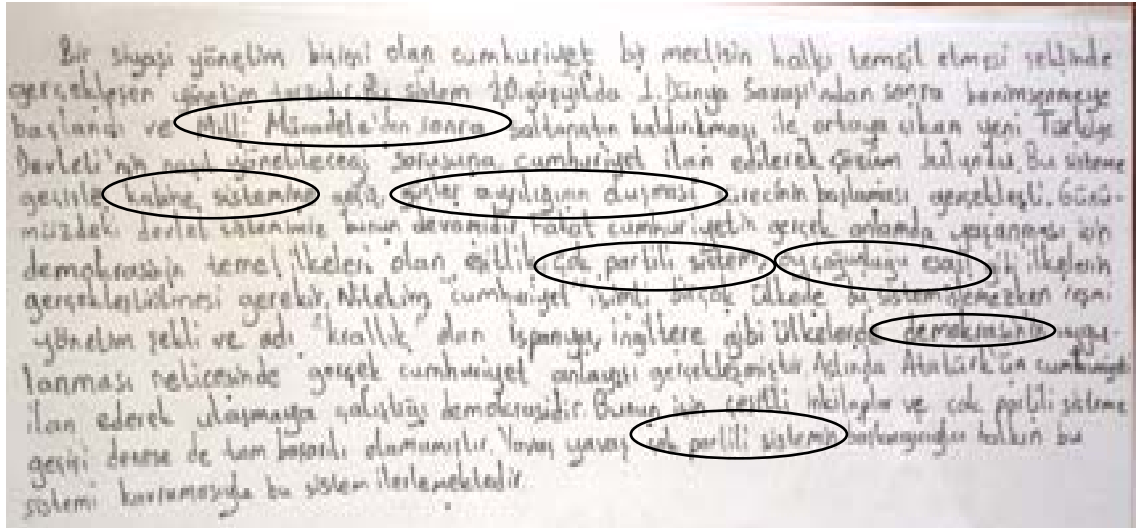 Bir siyasi yönetim birimi olan cumhuriyet bir meclisin halkı temsil etmesi şeklinde
gerçekleşen yönetim tarzıdır. Bu sistem 20. yüzyılda 1. Dünya Savaşı'ndan sonra benimsenmeye
başlandı ve Milli Mücadele'den sonra saltanatın kaldırılması ile ortaya çıkan yeni Türkiye
Devleti'nin nasıl yönetileceği sorusuna cumhuriyet ilan edilerek çözüm bulundu. Bu sisteme
geçişle kabine sistemine geçiş, güçler ayrılığının sürecinin başlaması gerçekleşti. Günü-
müzdeki devlet sistemimiz bunun devamıdır. Fakat cumhuriyetin gerçek anlamda yaşanması için
demokrasinin temel ilkeleri olan eşitlik, çok partili sistem, oy çoğunluğu esası gibi ilkelerin
gerçekleştirilmesi gerekir. Nitekim "cumhuriyet" isimli birçok ülkede bu sistem işlemezken resmi
yönetim şekli ve adı "krallık" olan İspanya, İngiltere gibi ülkelerde demokrasinin uygu-
lanması neticesinde gerçek cumhuriyet anlayışı gerçekleşmiştir. Aslında Atatürk'ün cumhuriyeti
ilan ederek ulaşmaya çalıştığı demokrasidir. Bunun için çeşitli inkılaplar ve çok partili sisteme
geçişi denese de tam başarılı olamamıştır. Yavaş yavaş çok partili sistemin halkın bu
sistemi kavramasıyla bu sistem ilerlemektedir.